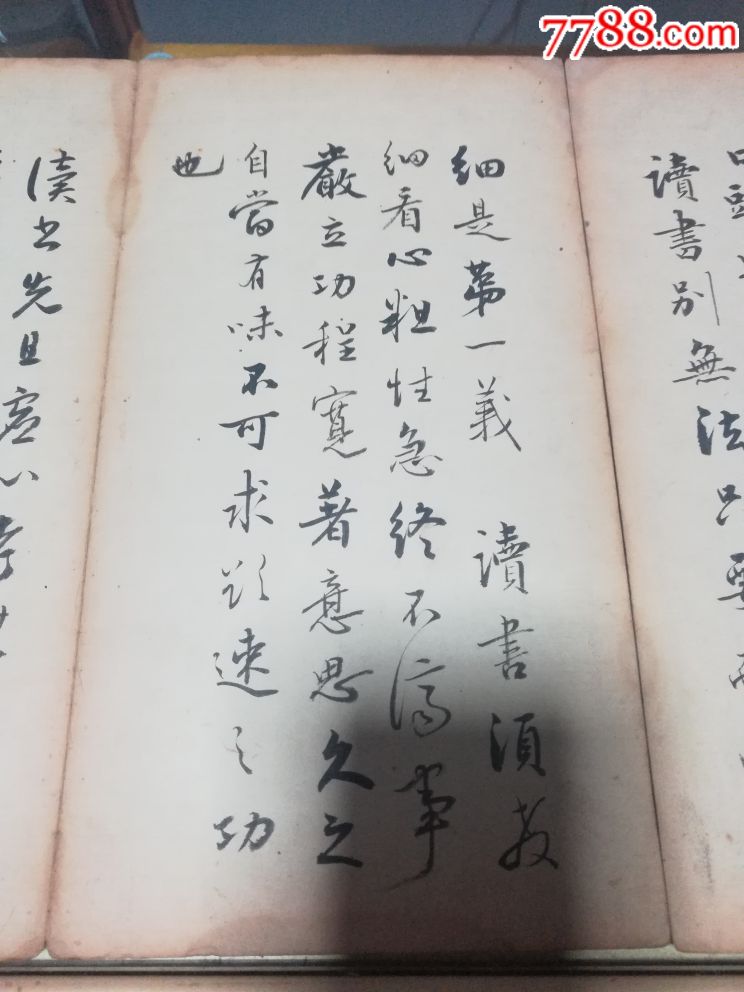 口頭
讀書別無法只要
細是第一義 讀書須教
細看心粗性急終不濟事
嚴立功程寬著意思久之
自當有味不可求欲速之功
也
讀书先且虛心考
7788.com